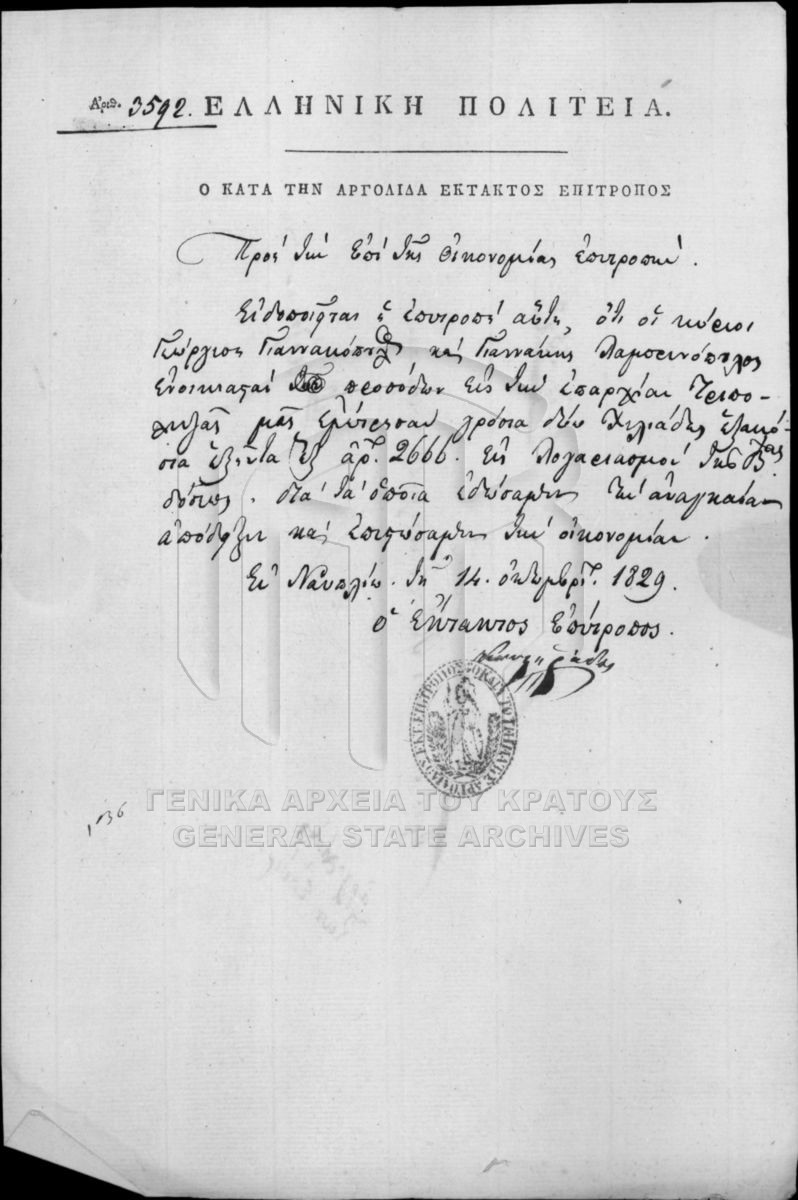 Ἀριθ. 3592. ΕΛΛΗΝΙΚΗ ΠΟΛΙΤΕΙΑ.
Ο ΚΑΤΑ ΤΗΝ ΑΡΓΟΛΙΔΑ ΕΚΤΑΚΤΟΣ ΕΠΙΤΡΟΠΟΣ
Πρὸς τὴν ἐπὶ τῆς Οἰκονομίας ἐπιτροπήν.
Εἰδοποιεῖται ἡ ἐπιτροπὴ αὕτη, ὅτι οἱ κύριοι
Γεώργιος Γιαννακόπουλος καὶ Γιαννάκης Λαμπρινόπουλος
ἐνοικιασταὶ τῶν προσόδων εἰς τὴν ἐπαρχίαν Τριπο-
λιτζᾶς μᾶς ἐμέτρησαν γρόσια δύω χιλιάδες ἑξακό-
σια ἑξῆντα ἓξ ἀρ. 2666. εἰς λογαριασμὸν τῆς
δόσεως. διὰ τὰ ὁποῖα ἐδώσαμεν τὴν ἀναγκαίαν
ἀπόδειξιν καὶ ἐπιστώσαμεν τὴν οἰκονομίαν.
Ἐν Ναυπλίῳ. τῇ 14. ὀκτωβρίου. 1829.
ὁ Ἔκτακτος Ἐπίτροπος.
ΓΕΝΙΚΑ ΑΡΧΕΙΑ ΤΟΥ ΚΡΑΤΟΥΣ
GENERAL STATE ARCHIVES